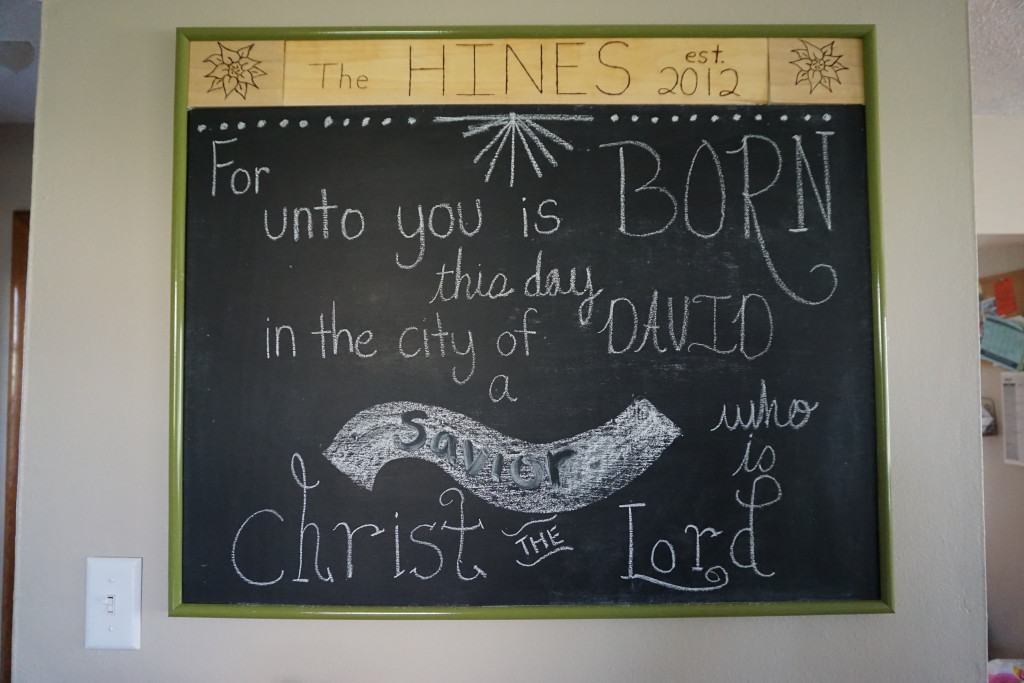 The HINES est. 2012
For
unto you is BORN
this day
in the city of DAVID
a
Savior
who
is
Christ THE Lord